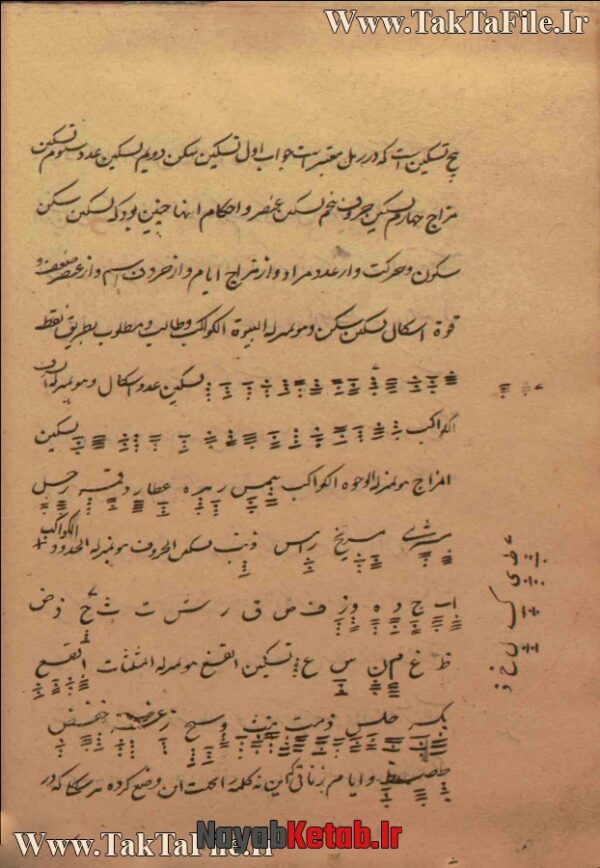 www.TakTaFile.Ir
پنج تسکین است که در رمل معتبر است جواب اول تسکین سکن دویم تسکین عدد سیوم تسکین
مزاج چهارم تسکین حروف پنجم تسکین عنصر و احکام اینها چنین بود که تسکین سکن
سکون و حرکت و از عدد مراد و از مزاج ایام و از حروف اسم و از عنصر ضعف و
قوة اشکال تسکین سکن و بمنزله البیوة الکواکب و طالب و مطلوب بطریق نقطه
تسکین عدد اشکال و بمنزله
الکواکب تسکین
المزاج بمنزله الوجوه الکواکب شمس زهره عطارد قمر زحل
مشتری مریخ راس ذنب تسکین الحروف بمنزله الحدود الکواکب
اب ج د ه و ز ف ص ق ر ش ت ث خ ذ ض
ظ غ م ن س ع تسکین القسغ بمنزله المثلثات ایقسغ
بکر جلس دمت هنث وسخ زعذ حفض
طصظ و ایام زناتی که این نه کلمه وضع کرده
ط ی ک ل
www.TakTaFile.Ir
NayabKetab.Ir